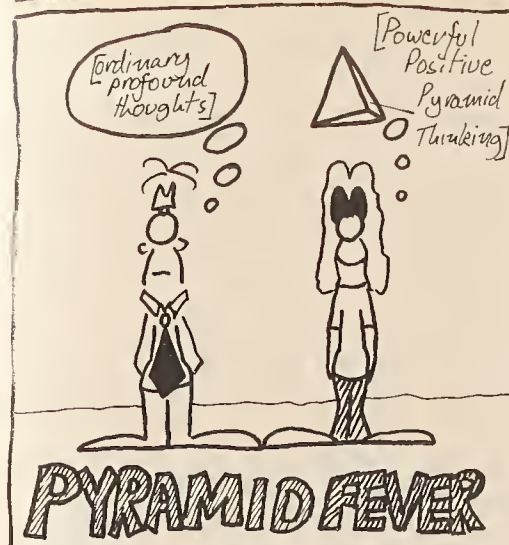 [ordinary
profound
thoughts]
[Powerful
Positive
Pyramid
Thinking]
PYRAMID FEVER